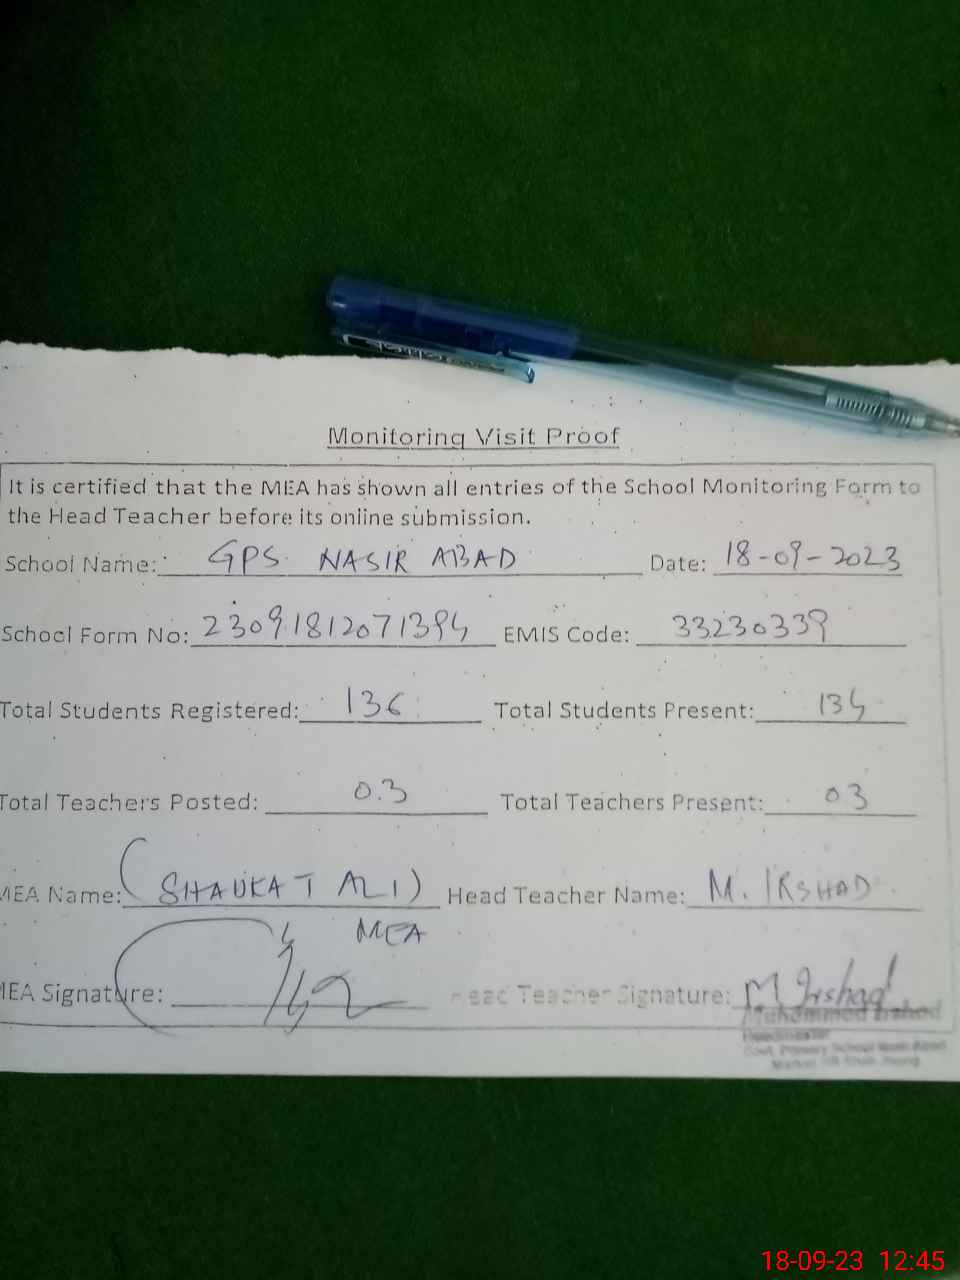 Monitoring Visit Proof
It is certified that the MEA has shown all entries of the School Monitoring Form to
the Head Teacher before its online submission.
School Name: GPS. NASIR ABAD Date: 18-09-2023
School Form No: 23091812071394 EMIS Code: 33230339
Total Students Registered: 136 Total Students Present: 134
Total Teachers Posted: 0.3 Total Teachers Present: 03
MEA Name: (SHAUKAT ALI) Head Teacher Name: M. IRSHAD
MEA
MEA Signature: Head Teacher Signature: M Irshad
Muhammad Irshad
Headmaster
Govt. Primary School Nasir Abad
18-09-23 12:45